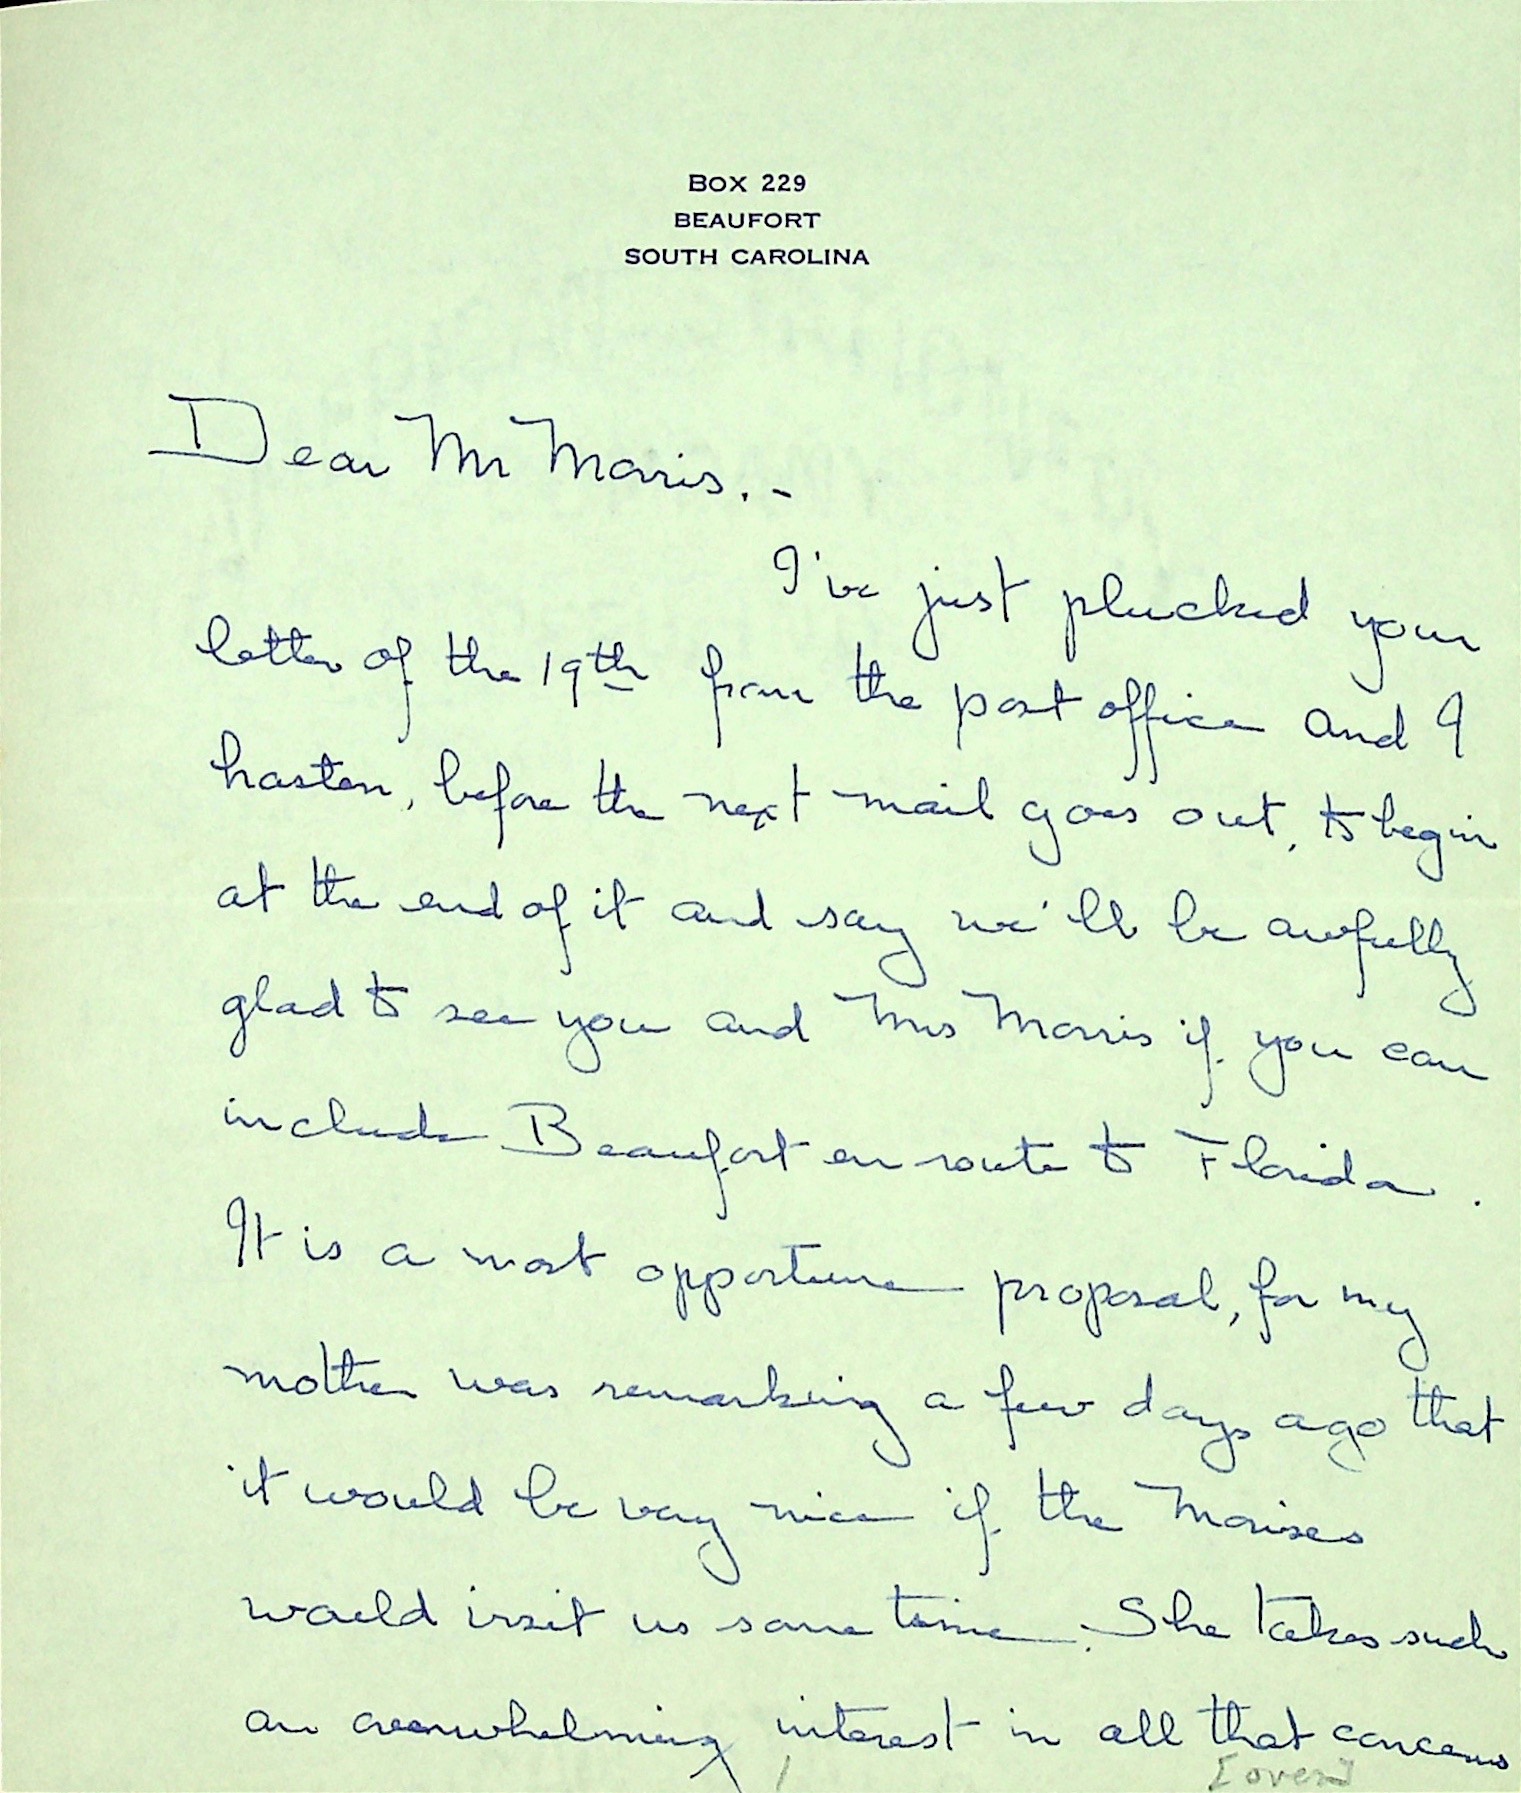 BOX 229
BEAUFORT
SOUTH CAROLINA
Dear Mr Morris. -
I've just plucked your
letter of the 19th from the post office and I
hasten, before the next mail goes out, to begin
at the end of it and say we'll be awfully
glad to see you and Mrs Morris if you can
include Beaufort en route to Florida.
It is a most opportune proposal, for my
mother was remarking a few days ago that
it would be very nice if the Morrises
would visit us some time. She takes such
an overwhelming interest in all that concerns
[over]